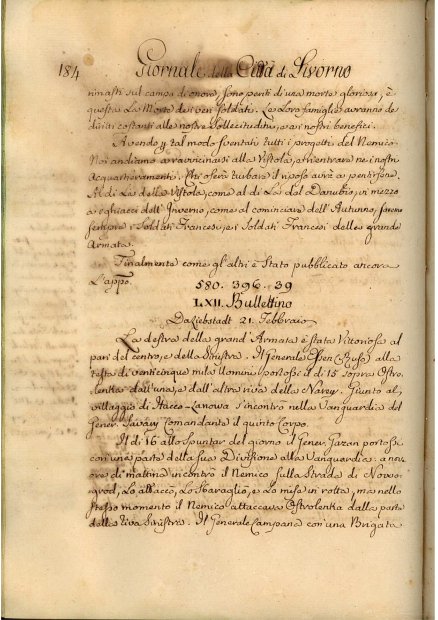 184 Giornale della Città di Livorno
rimasti sul campo di onore, sono periti di una morte gloriosa, è
questa La Morte dei veri Soldati. Le Loro famiglie avranno de
diritti costanti alle nostre Sollecitudini, e ai nostri benefici.
Avendo p tal modo sventati tutti i progetti del Nemico
Noi andiamo a ravvicinarsi alla Vistola, a rientrare ne nostri
Acquartieramenti. Chi oserà turbare il riposo avrà a pentirsene.
Al di La della Vistola, come al di La del Danubio, in mezzo
a ghiacci dell' Inverno, come al cominciare dell' Autunno, saremo
sempre i Soldati Francesi, e i Soldati Francesi della grande
Armata.
Finalmente come gl'altri è Stato pubblicato ancora
L'appo.
580. 396. 39
LXII. Bullettino
Da Liebstadt 21. Febbraio
La destra della grand' Armata è stata Vittoriosa al
pari del centro, e della Sinistra. Il Generale Essen (Russo) alla
testa di venticinque mila Uomini portossi il di 15 sopra Ostro-
lenka dall' una, e dall' altra riva della Narew. Giunto al
villaggio di Stacce-Lanowa s'incontrò nella Vanguardia del
Gener. Savary Comandante il quinto Corpo.
Il di 16 allo Spuntar del giorno il Gener. Gazan portossi
con una parte della sua Divisione alla Vanguardia: a nove
ore di mattina incontrò il Nemico sulla Strada di Novo-
grod, Lo attaccò, Lo Sbaragliò, e Lo mise in rotta, ma nello
stesso momento il Nemico attaccava Ostrolenka dalla parte
della riva Sinistra. Il Generale Campana con una Brigata